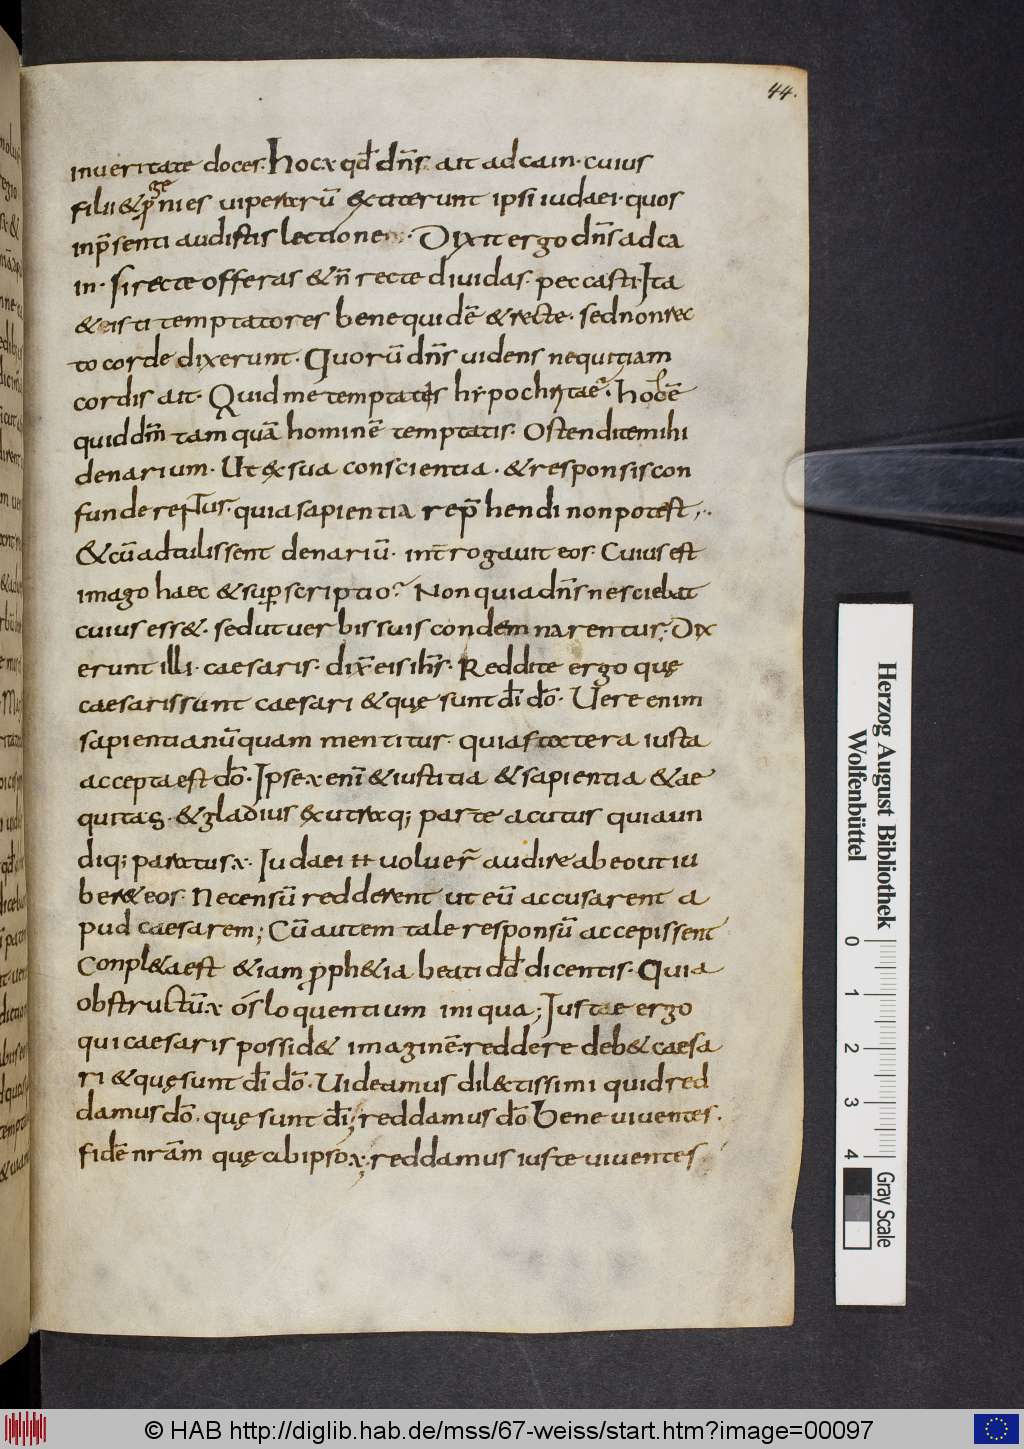 44.
inueritate doces. hoc÷ qđ dn̄s ait ad cain. cuius
filii & ꝓgenies uiperarū extiterunt ipsi iudaei. quos
inp̄senti audistis lectione. Dixit ergo dn̄s ad ca
in. si recte offeras & n̄ recte diuidas. peccasti. Ita
& isti temptatores bene quidē & recte. sed non rec
to corde dixerunt. Quorū dn̄s uidens nequitiam
cordis ait. Quid me temptatis hypochritae. hoc ē
quid dm̄ tam quā hominē temptatis. Ostendite mihi
denarium. Ut ex sua conscientia. & responsis con
funderentur. quia sapientia rep̄hendi non potest;
& cū adtulissent denariū. int̄rogauit eos. Cuius est
imago haec & sup̄scriptio? Non quia dn̄s nesciebat
cuius ess&. sed ut uerbis suis condemnarentur; Dix
erunt illi. caesaris. dix̄ eis ih̄s. Reddite ergo quę
caesaris sunt caesari & quę sunt dī dō. Uere enim
sapientia nūquam mentitur. quia statera iusta
accepta est dō. Ipse÷ enī & iustitia & sapientia & ae
quitas. & gladius ex utraq; parte acutus quia un
diq; paratus÷. Iudaei n̄ uoluer̄ audire ab eo ut iu
ber& eos. Nec censū redderent ut eū accusarent a
pud caesarem; Cū autem tale responsū accepissent
Conpl&a est &iam ꝓph&ia beati dd̄ dicentis. Quia
obstructū÷ os loquentium iniqua; Iuste ergo
qui caesaris possid& imaginē. reddere deb& caesa
ri & quę sunt dī dō. Uideamus dilectissimi quid red
damus dō. quę sunt dī; reddamus dō bene uiuentes.
fidē nr̄am quę ab ipso÷; reddamus iuste uiuentes
Herzog August Bibliothek
Wolfenbüttel
0 1 2 3 4
Gray Scale
© HAB http://diglib.hab.de/mss/67-weiss/start.htm?image=00097